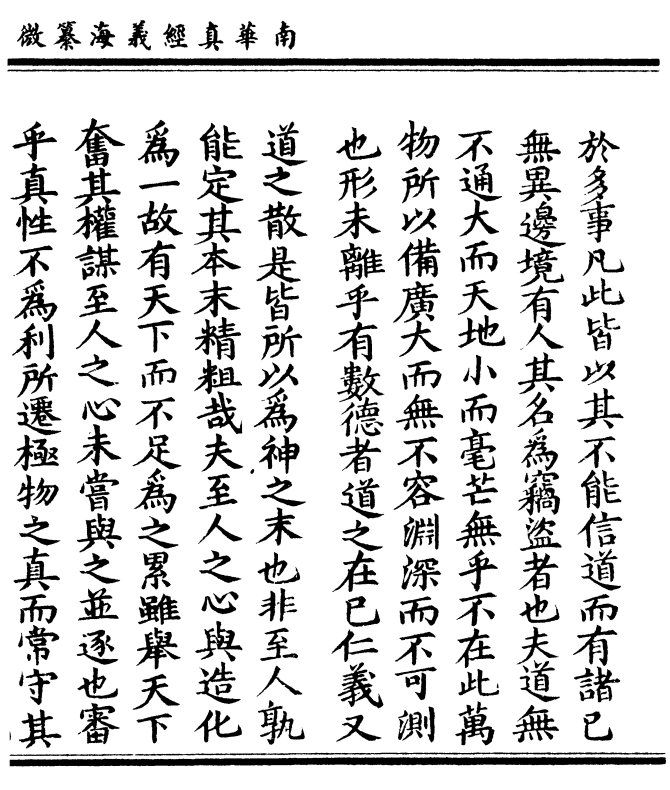 南華真經義海纂微
於多事凡此皆以其不能信道而有諸己
無異邊境有人其名為竊盜者也夫道無
不通大而天地小而毫芒無乎不在此萬
物所以備廣大而無不容淵深而不可測
也形未離乎有數德者道之在己仁義又
道之散是皆所以為神之末也非至人孰
能定其本末精粗哉夫至人之心與造化
為一故有天下而不足為之累雖舉天下
奮其權謀至人之心未嘗與之並逐也審
乎真性不為利所遷極物之真而常守其